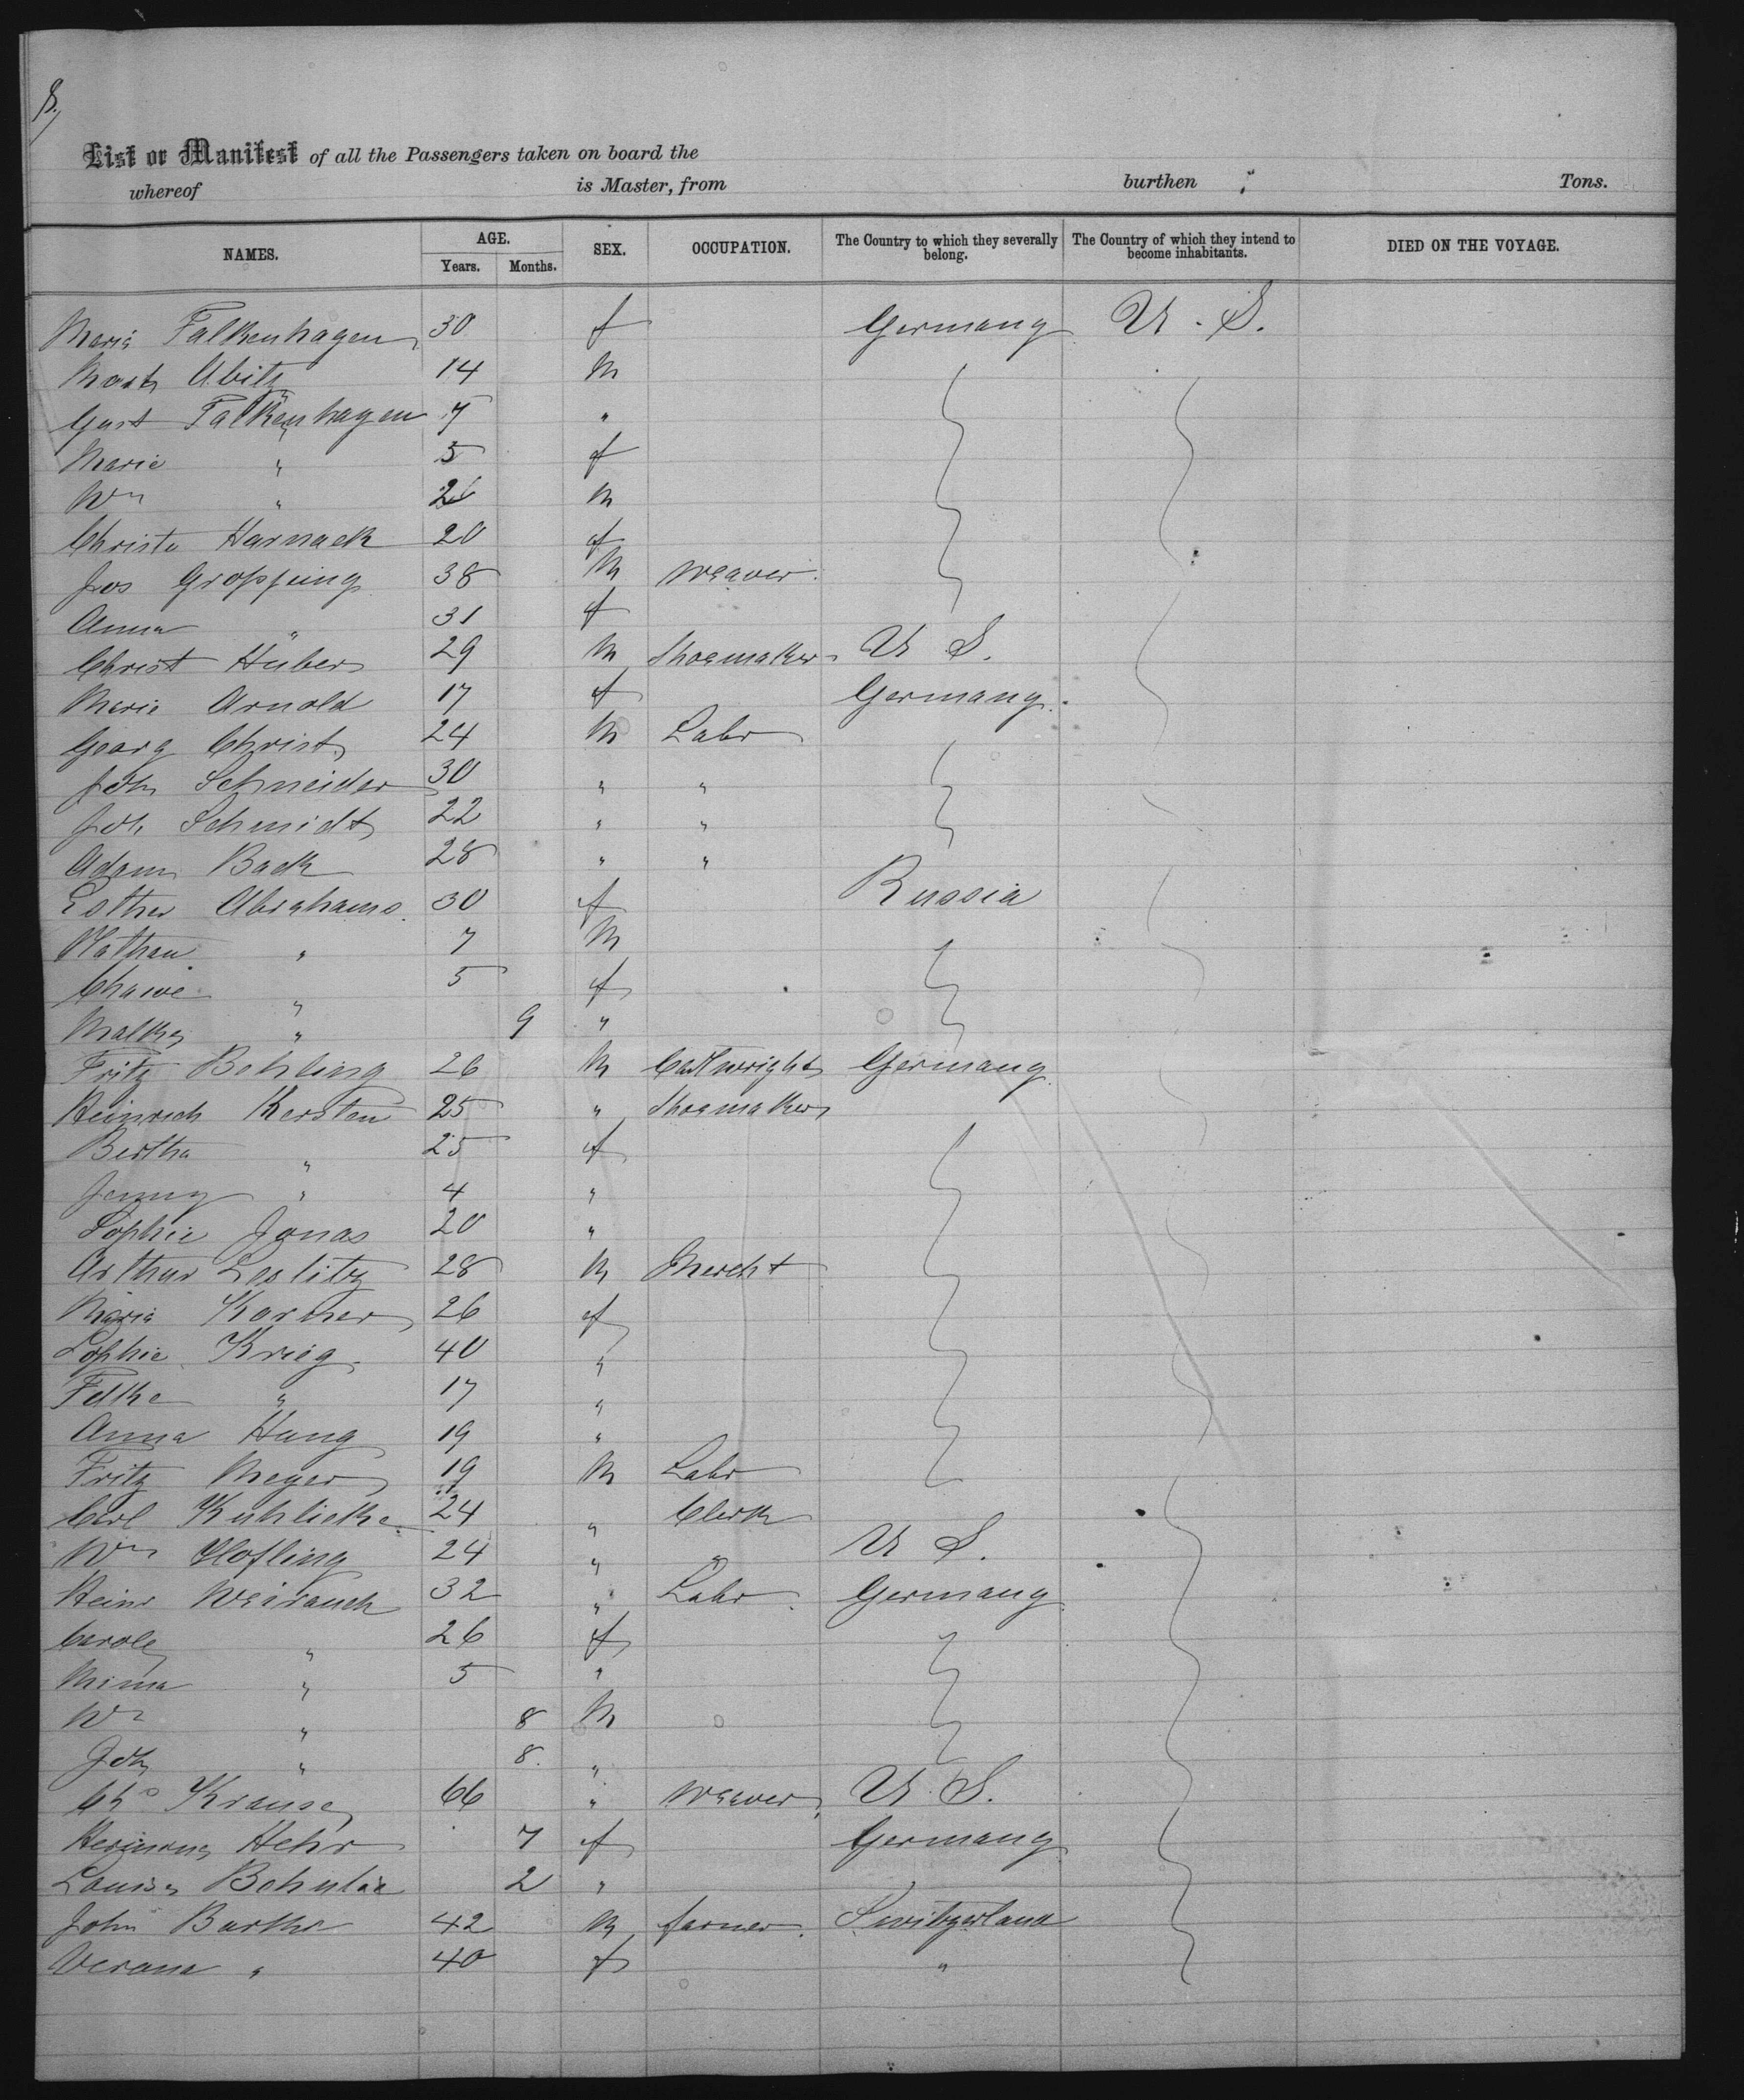 8.
List or Manifest of all the Passengers taken on board the
whereof is Master, from burthen Tons.
NAMES. AGE. SEX. OCCUPATION. The Country to which they severally belong. The Country of which they intend to become inhabitants. DIED ON THE VOYAGE.
Years. Months.
Maria Falkenhagen 30 f Germany U. S.
Abitz 14 M
Gust Falkenhagen 7 "
Marie " 5 f
Wm " M
Christe Harnack 20 f
Jos 38 M Weaver
Anna " 31 f
Christ Huber 29 M Shoemaker U S.
Marie Arnold 17 f Germany.
Georg Christ 24 M Labr
Joh Schneider 30 " "
Joh Schmidt 22 " "
Adam Back 28 " "
Esther Abrahams 30 f Russia
Nathan " 7 M
Chawe " 5 f
Malke " 9 "
Fritz Behling 26 M Cartwright Germany
Heinrich Kersten 25 " Shoemaker
Bertha " 25 f
Jenny " 4 "
Sophie Jonas 20 "
Arthur Leslitz 28 M Mercht
Maria Karcher 26 f
Sophie Krieg. 40 "
Felke " 17 "
Anna Hung 19 "
Fritz Meyer 19 M Labr
Carl Kuhlicke 24 " Clerk
Wm Hofling 24 " " U S.
Heinr Weirauch 32 " Labr Germany
Carole " 26 f
Mina " 5 "
Wm " 8 M
Joh " 8. "
Chs Krause 66 " Weaver U. S.
Hermine Hehr 7 f Germany
Louise 2 "
John 42 M farmer. Switzerland
Verona " 40 f "